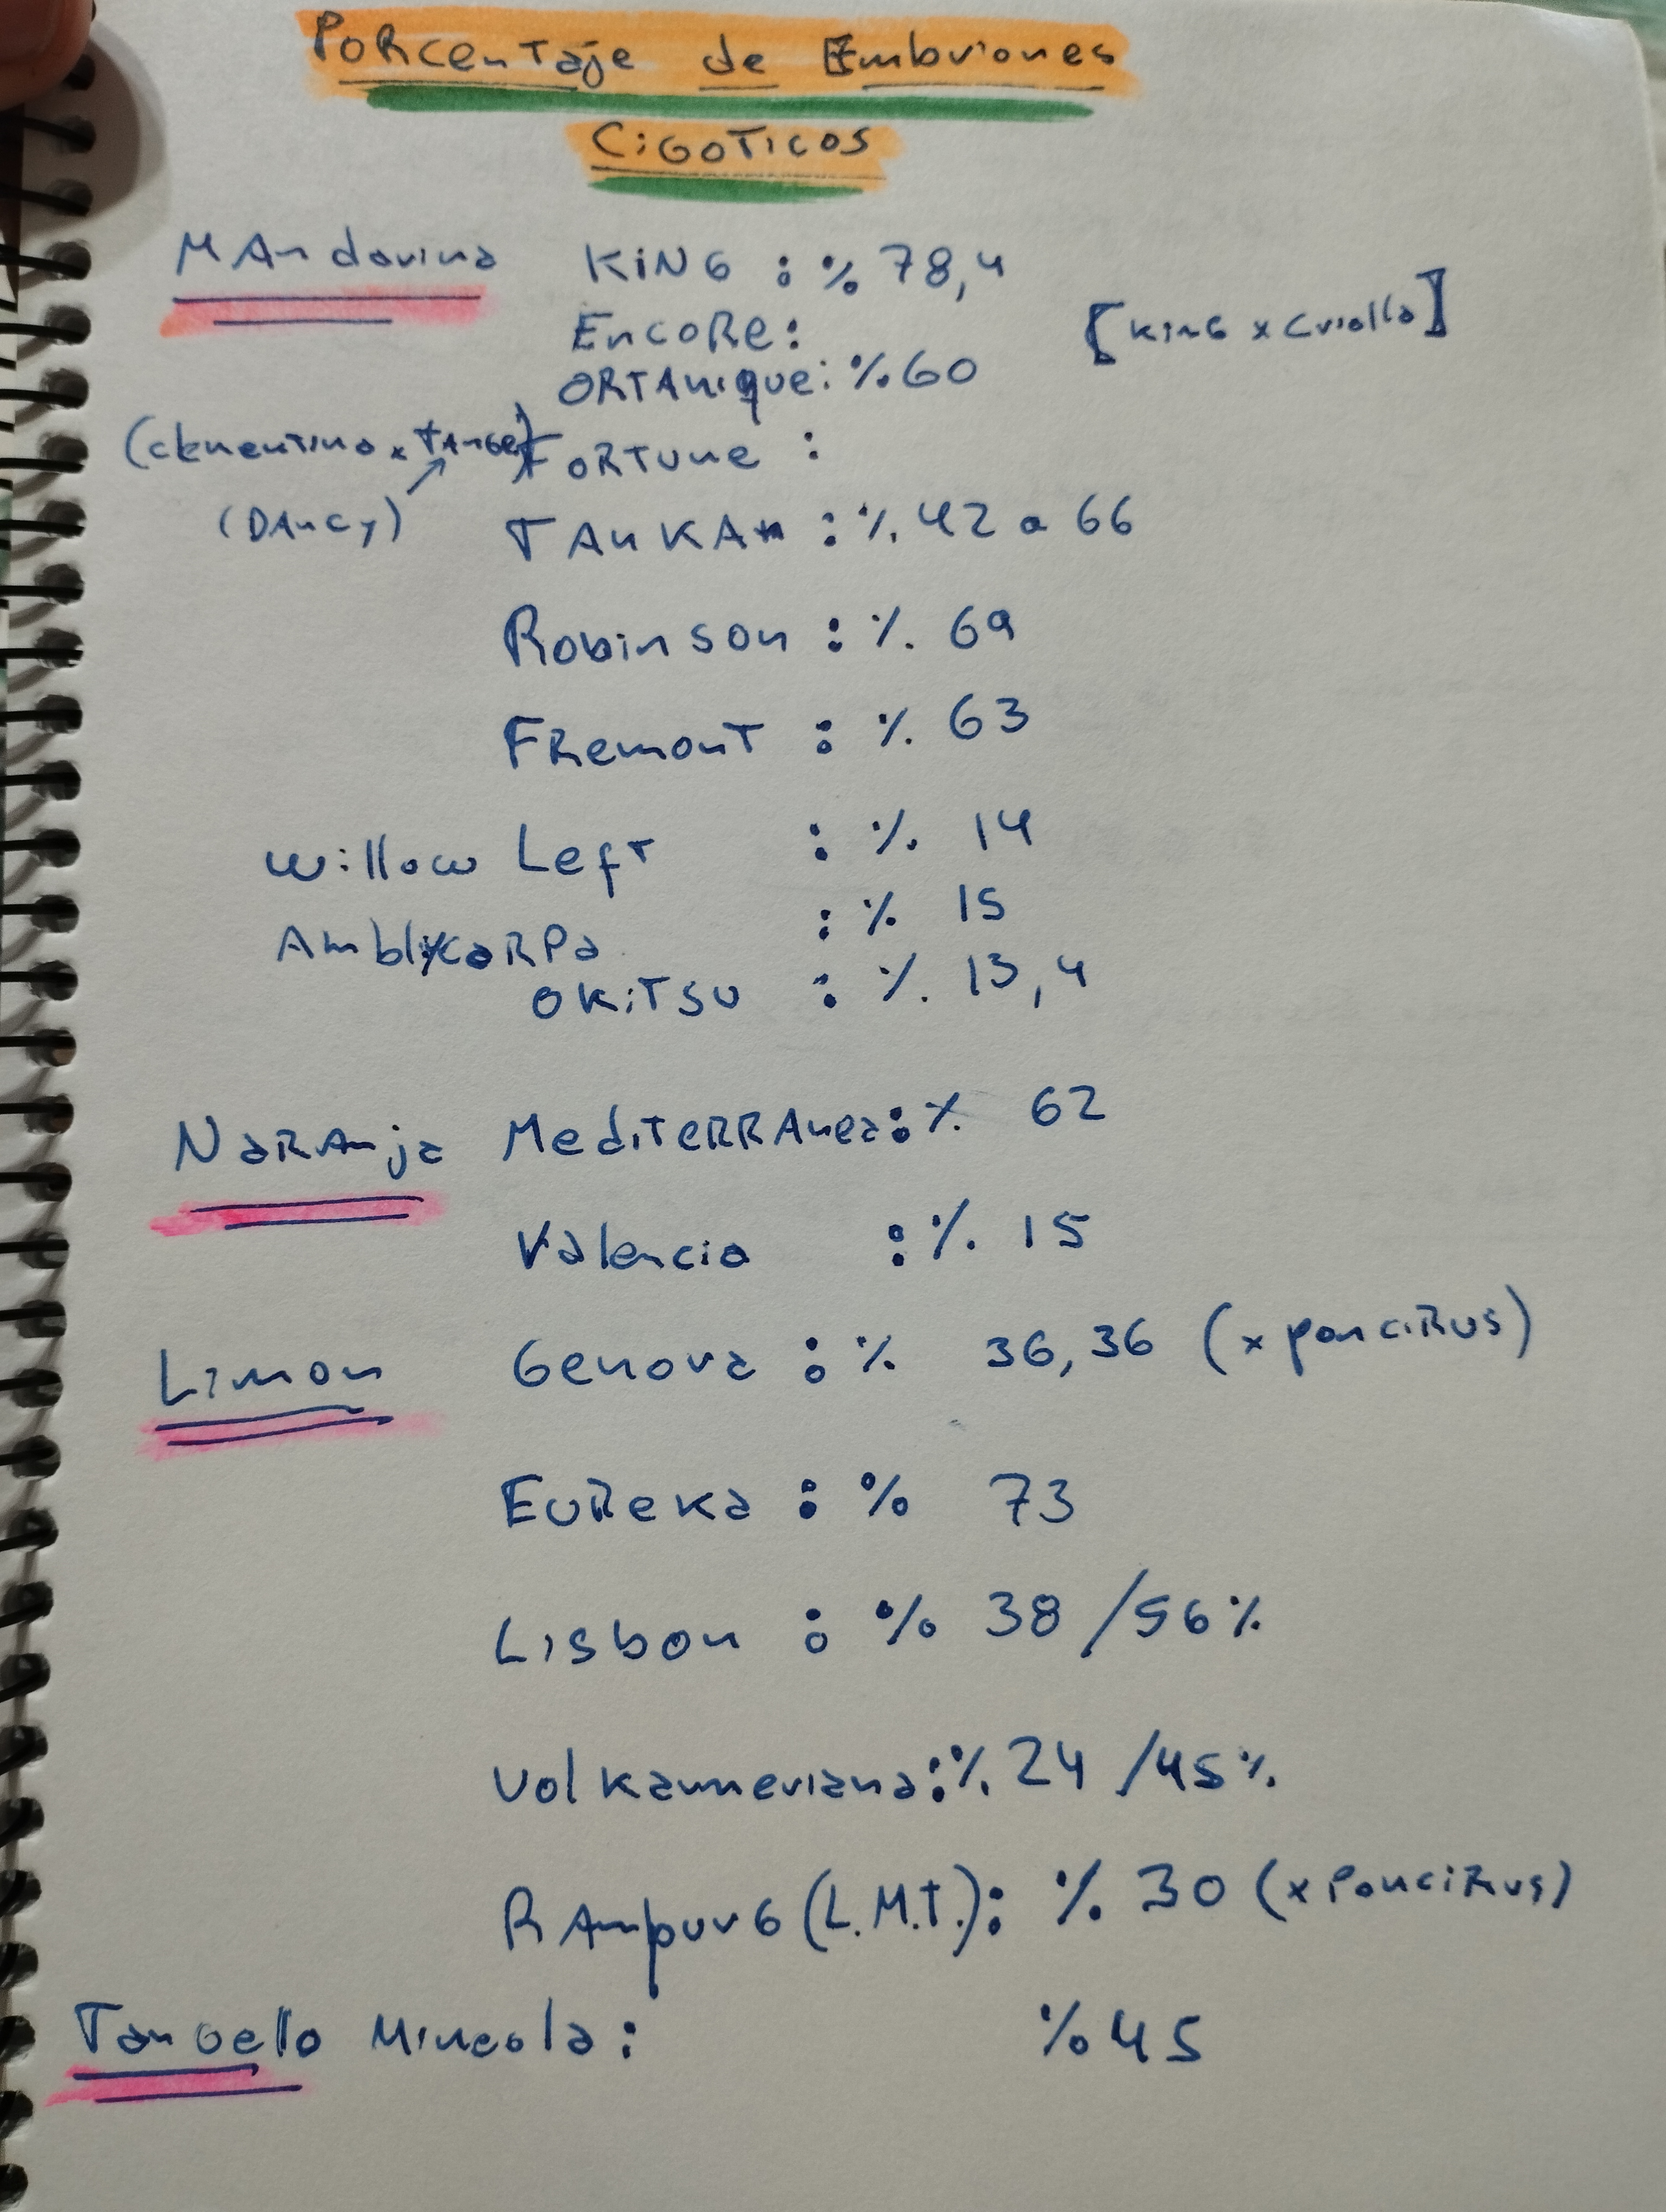 Porcentaje de Embriones
Cigoticos
Mandarina King : % 78,4
Encore: [King x Criolla]
Ortanique: % 60
(clementina x Tange) Fortune :
(Dancy)
Tankan : % 42 a 66
Robinson : % 69
Fremont : % 63
Willow Left : % 14
Amblycarpa : % 15
Okitsu : % 13,4
Naranja Mediterranea: % 62
Valencia : % 15
Limon Genova : % 36,36 (x poncirus)
Eureka : % 73
Lisbon : % 38 / 56 %
Volkameriana: % 24 / 45 %
Rampur 6 (L.M.T.): % 30 (x Poncirus)
Tangello Mineola: % 45